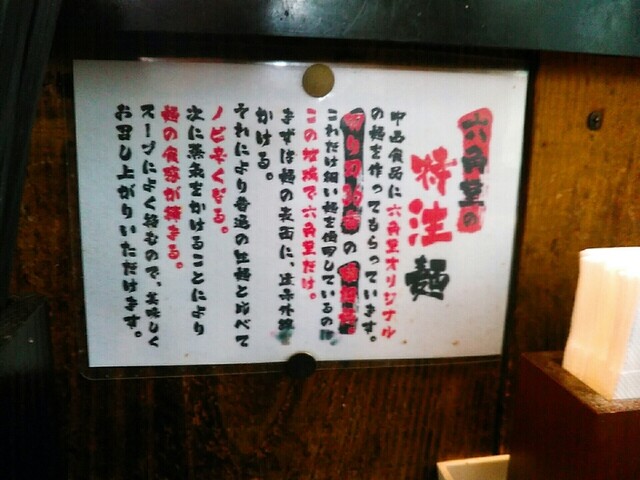 六角堂の
特注麺
中西食品に六角堂オリジナル
の麺を作ってもらっています。
切り刃36番の極細麺
これだけ細い麺を使用しているのは
この地域で六角堂だけ。
まずは麺の表面に、遠赤外線
かける。
それにより普通の生麺と比べて
ノビなくなる。
次に蒸気をかけることにより
麺の食感が増まる。
スープによく絡むので、美味しく
お召し上がりいただけます。